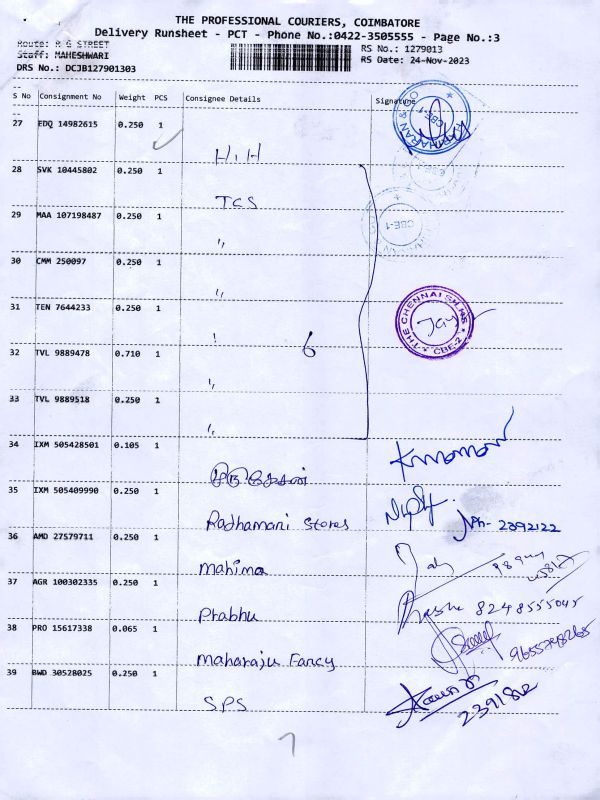 THE PROFESSIONAL COURIERS, COIMBATORE
Delivery Runsheet - PCT - Phone No.:0422-3505555 - Page No.:3
Route: R G STREET
Staff: MAHESHWARI
DRS No.: DCJB127901303
RS No.: 1279013
RS Date: 24-Nov-2023
S No Consignment No Weight PCS Consignee Details Signature
27 EDQ 14982615 0.250 1
H.H
28 SVK 10445802 0.250 1
TCS
29 MAA 107198487 0.250 1
"
30 CMM 250097 0.250 1
"
31 TEN 7644233 0.250 1
THE CHENNAI SILKS
CBE-2
6
32 TVL 9889478 0.710 1
"
33 TVL 9889518 0.250 1
"
34 IXM 505428501 0.105 1
35 IXM 505409990 0.250 1
Radhamani Stores
Ph- 2392122
36 AMD 27579711 0.250 1
Mahima
37 AGR 100302335 0.250 1
Prabhu
8248555045
38 PRO 15617338 0.065 1
Maharaju Fancy
9655798265
39 BWD 30528025 0.250 1
SPS